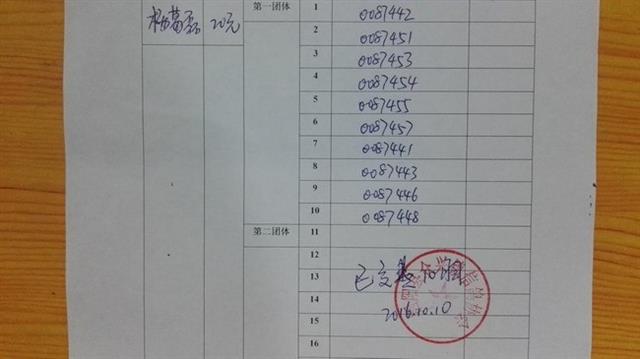 第一团体 1 0087442
20元
2 0087451
3 0087453
4 0087454
5 0087455
6 0087457
7 0087441
8 0087443
9 0087446
10 0087448
第二团体 11
12
13 已交
14 2016.10.10
15
16